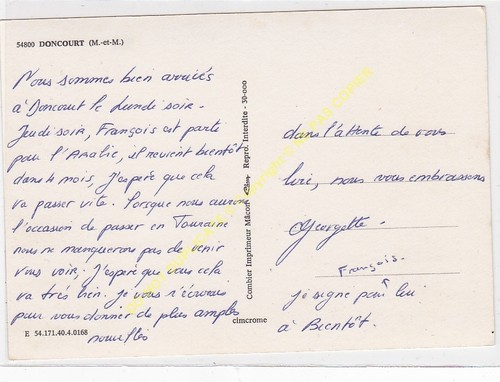 54800 DONCOURT (M.-et-M.)
Nous sommes bien arrivés
à Doncourt le lundi soir -
Jeudi soir, François est parti
pour l'Arabie, il revient bientôt
dans 4 mois, j'espère que cela
va passer vite. Lorsque nous aurons
l'occasion de passer en Touraine
nous ne manquerons pas de venir
vous voir, j'espère que vous cela
va très bien. je vous r'écrirais
pour vous donner de plus amples
nouvelles
E 54.171.40.4.0168
Combier Imprimeur Mâcon Repro. Interdite - 30-000
cimcrome
dans l'attente de vous
lire, nous vous embrassons
Georgette.
François.
je signe pour lui
à Bientôt.